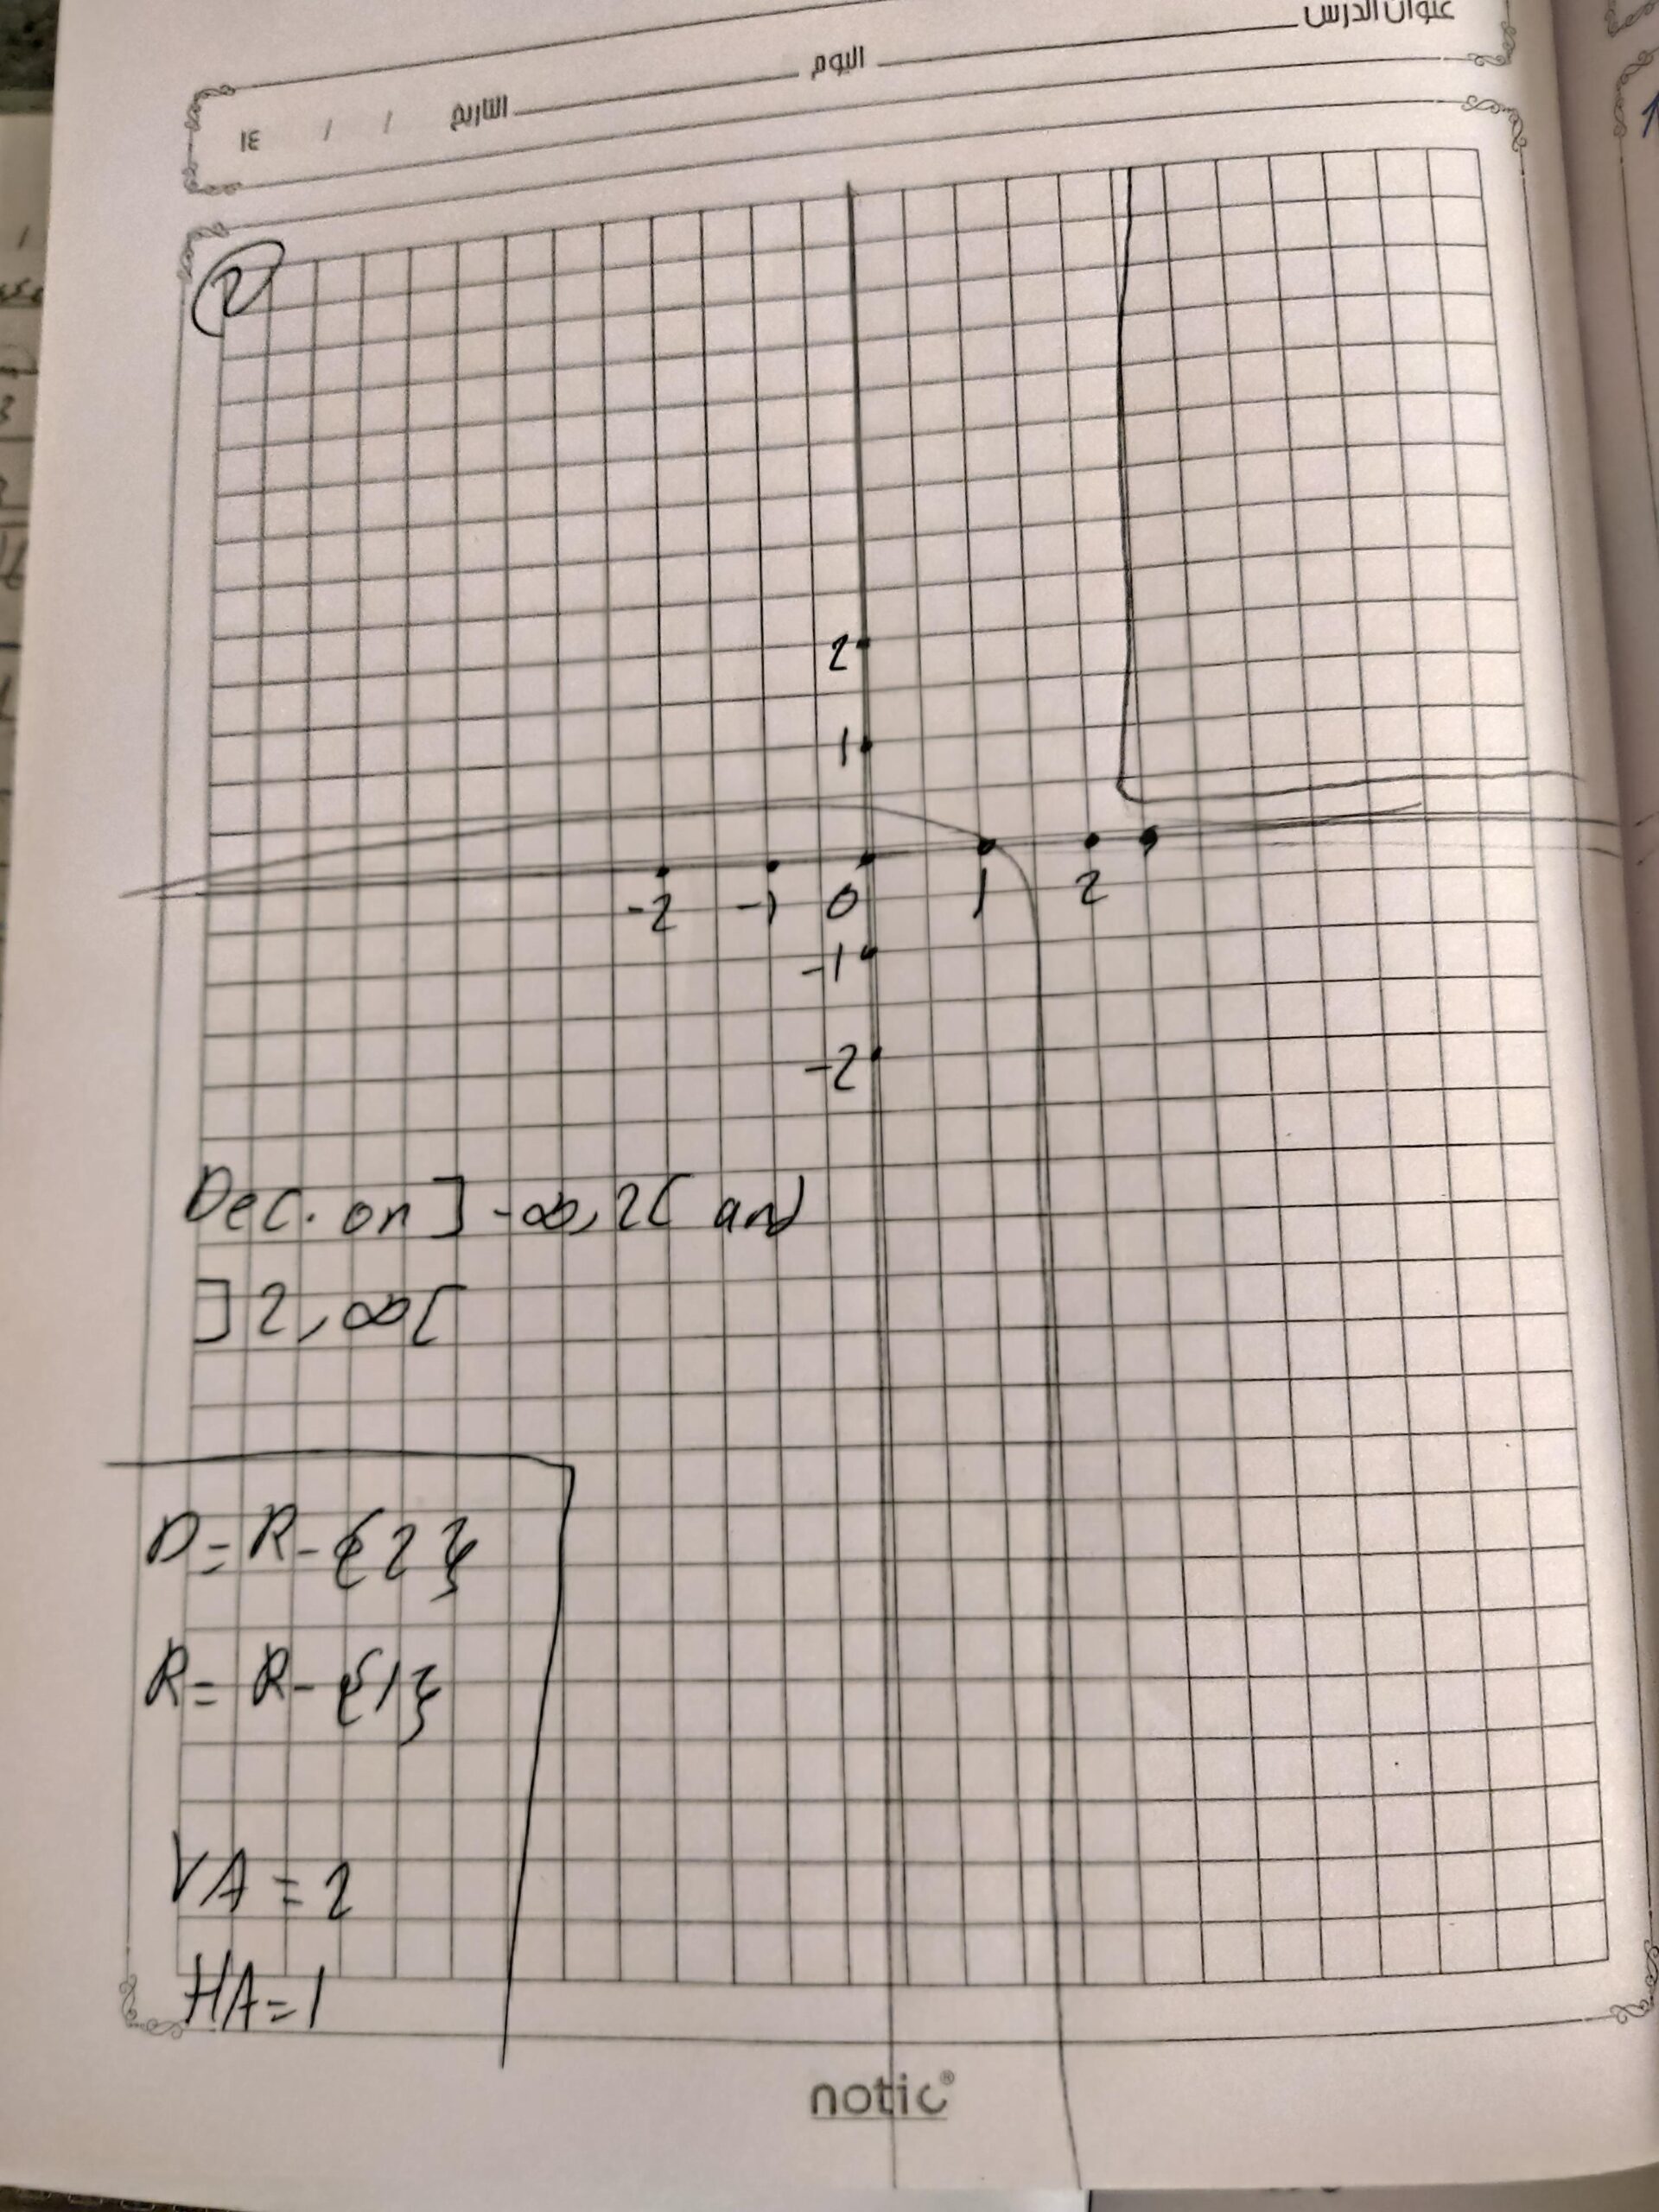 عنوان الدرس
اليوم
التاريخ / / ١٤
2
2
1
-2 -1 0 1 2
-1
-2
Dec. on ]-∞, 2[ and
]2, ∞[
D = R - {2}
R = R - {1}
VA = 2
HA = 1
notic®